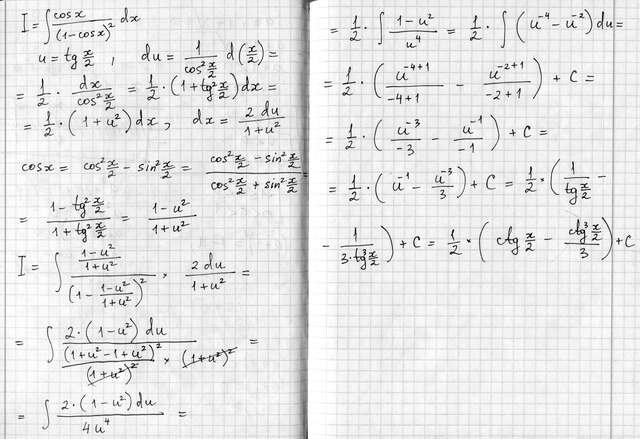 I = ∫ cosx / (1-cosx)² dx
u = tg x/2 , du = 1/cos² x/2 d(x/2) =
= 1/2 · dx / cos² x/2 = 1/2 · (1+tg² x/2) dx =
= 1/2 · (1+u²) dx , dx = 2 du / 1+u²
cosx = cos² x/2 - sin² x/2 = (cos² x/2 - sin² x/2) / (cos² x/2 + sin² x/2) =
= (1 - tg² x/2) / (1 + tg² x/2) = (1-u²) / (1+u²)
I = ∫ ((1-u²)/(1+u²)) / (1 - (1-u²)/(1+u²))² × 2 du / 1+u² =
= ∫ 2·(1-u²) du / ((1+u²-1+u²)² / (1+u²)² × (1+u²)²) =
= ∫ 2·(1-u²) du / 4u⁴ =
= 1/2 · ∫ (1-u²) / u⁴ = 1/2 · ∫ (u⁻⁴ - u⁻²) du =
= 1/2 · (u⁻⁴⁺¹ / -4+1 - u⁻²⁺¹ / -2+1) + C =
= 1/2 · (u⁻³ / -3 - u⁻¹ / -1) + C =
= 1/2 · (u⁻¹ - u⁻³ / 3) + C = 1/2 × (1 / tg x/2 -
- 1 / 3·tg³ x/2) + C = 1/2 × (ctg x/2 - ctg³ x/2 / 3) + C